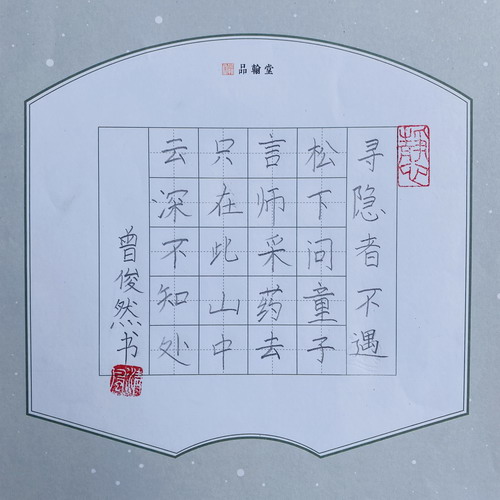 品翰堂
静心
寻隐者不遇
松下问童子
言师采药去
只在此山中
云深不知处
曾俊然书